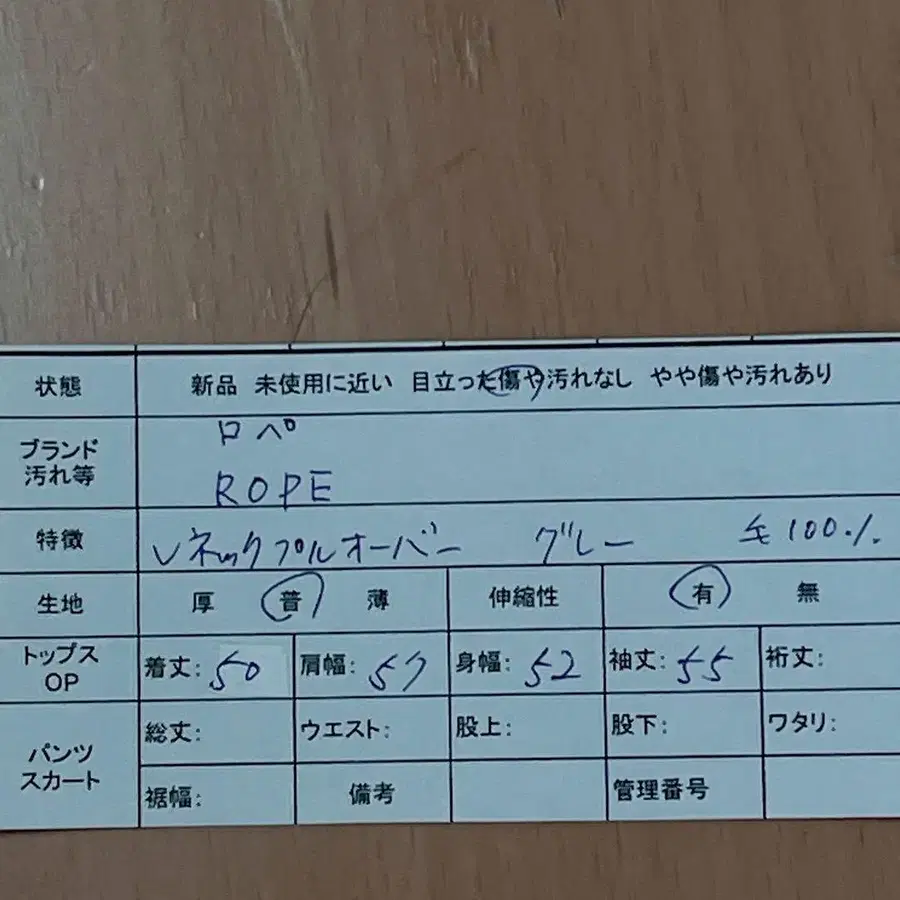 状態 新品 未使用に近い 目立った傷や汚れなし やや傷や汚れあり
ブランド
汚れ等
ロペ
ROPE
特徴 Vネックプルオーバー グレー 毛100%
生地 厚 普 薄 伸縮性 有 無
トップス
OP
着丈: 50 肩幅: 57 身幅: 52 袖丈: 55 裄丈:
パンツ
スカート
総丈: ウエスト: 股上: 股下: ワタリ:
裾幅: 備考 管理番号